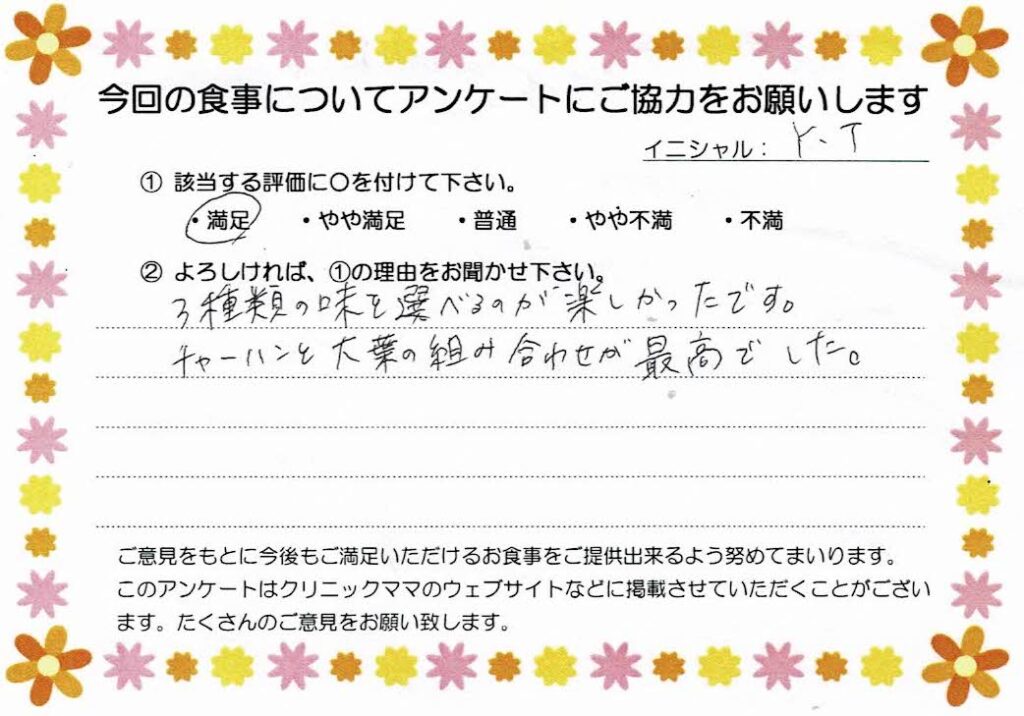 今回の食事についてアンケートにご協力をお願いします
イニシャル： Y.T
① 該当する評価に○を付けて下さい。
・満足 ・やや満足 ・普通 ・やや不満 ・不満
② よろしければ、①の理由をお聞かせ下さい。
3種類の味を選べるのが楽しかったです。
チャーハンと大葉の組み合わせが最高でした。
ご意見をもとに今後もご満足いただけるお食事をご提供出来るよう努めてまいります。
このアンケートはクリニックママのウェブサイトなどに掲載させていただくことがござい
ます。たくさんのご意見をお願い致します。